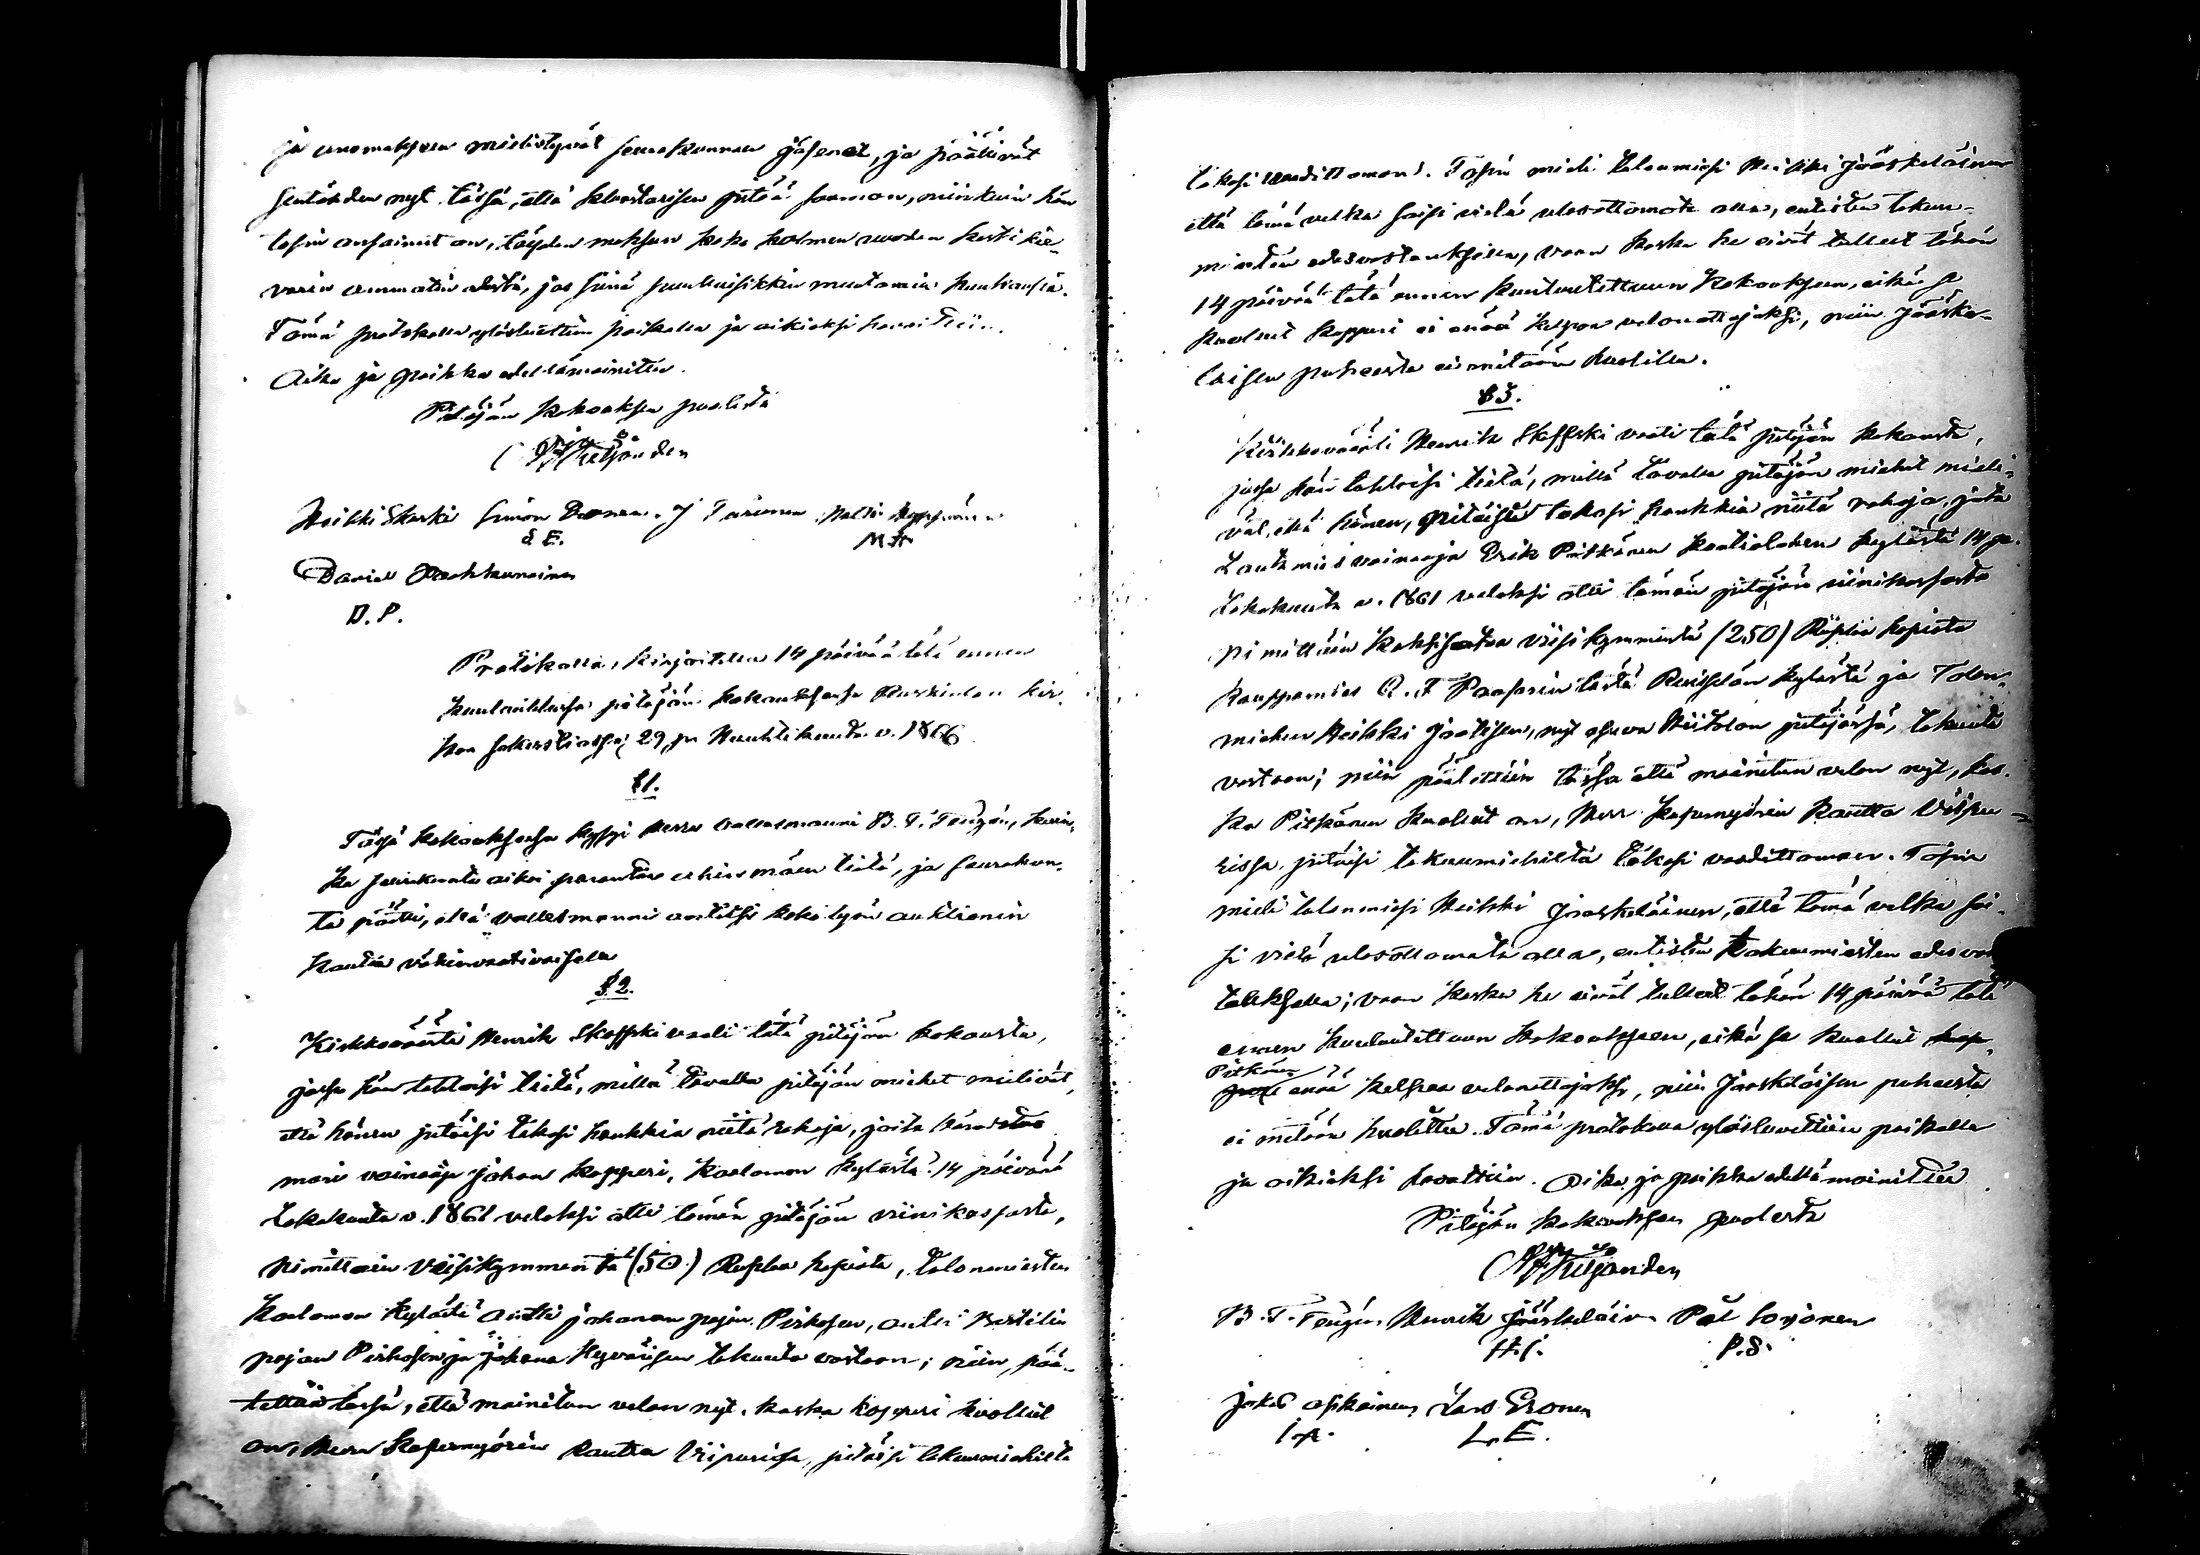 ja anomuksen mielistyvät seurakunnan jäsenet, ja päättivät
sentähden nyt tässä, että klaatarisen pitää saaman, niinkuin hän
tosin ansainnut on, täyden maksun koko kolmen vuoden kestikie-
varin ammatin edestä, jos siinä puuttuisikkin muutamia kuukausia.
Tämä protokolla ylösluettiin paikalla ja oikiaksi havaittiin.
Aika ja paikka edellämainittu.
Pitäjän kokouksen puolesta
Heikki Skarki Simon J Parinen Matti
S E. M H
Daniel
D. P.
Protokolla, kirjoitettu 14 päivää tätä ennen
kuulutetussa pitäjän kokouksessa Ruskialan kir-
kon sakerstiassa 29 p. Huuhtikuuta v. 1866
§1.
Tässä kokouksessa kysyi Herra vallesmanni B. T. Tengén, kuin-
ka seurakunta aikoi parantaa mäen tietä, ja seurakun-
ta päätti, että vallesmanni antaisi koko työn auktionin
kautta vähinvaativaiselle
§2.
Kirkkovääti Henrik Skoffski vaati tätä pitäjän kokousta,
jossa hän tahtoisi tietä, millä tavalla pitäjän miehet mielivät,
että hänen pitäisi takasi haukkia niitä rahoja, joita
mari vainaja Johan Kopperi, Kaalamon kylästä 14 päivänä
Lokakuuta v. 1861 velaksi otti tämän pitäjän viinikassasta,
nimittäin Viisikymmentä (50) Ruplaa hopiata, talonmiesten
Kaalamon kylästä Antti Johanan pojan Pirhosen, Antti Bertilin
pojan Pirhosen ja Johana Hyvärisen takuuta vastaan; niin pää-
tettiin tässä, että mainitun velan nyt, koska Kopperi kuollut
on, Herra kautta Viipurissa, pitäisi takuumiehistä
takasi vaadittaman. Tosin mieli talonmiesi Heikki Jääskeläinen
että tämä velka saisi vielä ulosottamata olla, entisten takuu-
miesten edesvastauksella, vaan koska he eivät tulleet tähän
14 päivää tätä ennen kuulutettuun kokoukseen, eikä se
kuollut Kopperi ei enää kelpaa velanottajaksi, niin Jääske-
läisen puheesta ei mitään huolittu.
§3.
Kirkkovääti Henrik Skoffski vaati tätä pitäjän kokousta,
jossa hän tahtoisi tietä, millä tavalla pitäjän miehet mieli-
vät, että hänen, pitäisi takasi haukkia niitä rahoja, joita
Lautamies vainaaja Erik Pitkänen Kontiolahen kylästä 14 p.
Lokakuuta v. 1861 velaksi otti tämän pitäjän viinikassasta
nimittäin Kaksisataa viisikymmentä (250) Ruplaa hopiata
kauppamies A. F. tästä Ruskialan kylästä ja Talon-
miehen Heikki Jaatisen, nyt asuva Hiitolan pitäjässä, takuuta
vastaan; niin päätettiin tässä että mainitun velan nyt, kos-
ka Pitkänen kuollut on, Herr kautta Viipu-
rissa, pitäisi takuumiehistä takasi vaadittaman. Tosin
mieli talonmiesi Heikki Jääskeläinen, että tämä velka sai-
si vielä ulosottamata olla, entisten takuumiesten edesvas
tauksella; vaan koska he eivät tulleet tähän 14 päivää tätä
ennen kuulutettuun kokoukseen, eikä se kuollut
Pitkänen
enää kelpaa velanottajaksi, niin Jääskeläisen puheesta
ei mitään huolittu. Tämä protokolla ylösluettiin paikalla
ja oikiaksi havattiin. Aika ja paikka edellämainittu
Pitäjän kokouksen puolesta
B. T. Tengén. Henrik Jääskeläin Pål Sorjonen
H. J. P. S.
Jakob Asikainen, Lars Eronen
I. A. L. E.